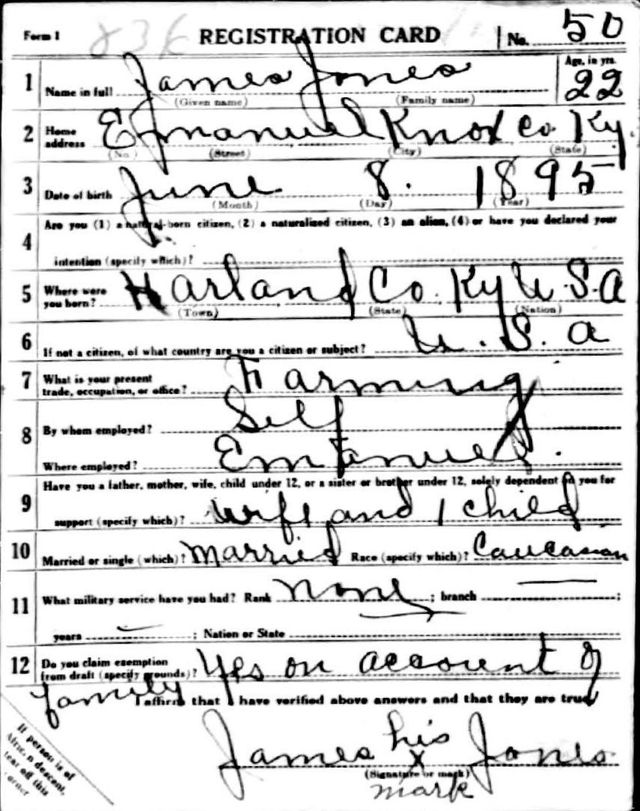 Form 1 836 REGISTRATION CARD No. 50
1 Name in full James Jones Age, in yrs. 22
(Given name) (Family name)
2 Home address Emanuel Knox Co. Ky
(No.) (Street) (City) (State)
3 Date of birth June 8. 1895
(Month) (Day) (Year)
4 Are you (1) a natural-born citizen, (2) a naturalized citizen, (3) an alien, (4) or have you declared your
intention (specify which)?
5 Where were you born? Harland Co. Ky U.S.A
(Town) (State) (Nation)
6 If not a citizen, of what country are you a citizen or subject? U.S.A
7 What is your present trade, occupation, or office? Farming
8 By whom employed? Self
Where employed? Emanuel.
9 Have you a father, mother, wife, child under 12, or a sister or brother under 12, solely dependent on you for
support (specify which)? wife and 1 child
10 Married or single (which)? Married Race (specify which)? Caucasian
11 What military service have you had? Rank none ; branch —
years — ; Nation or State
12 Do you claim exemption from draft (specify grounds)? Yes on account of
family
I affirm that I have verified above answers and that they are true
James his x Jones
(Signature or mark)
mark
If person is of
African descent,
tear off this
corner